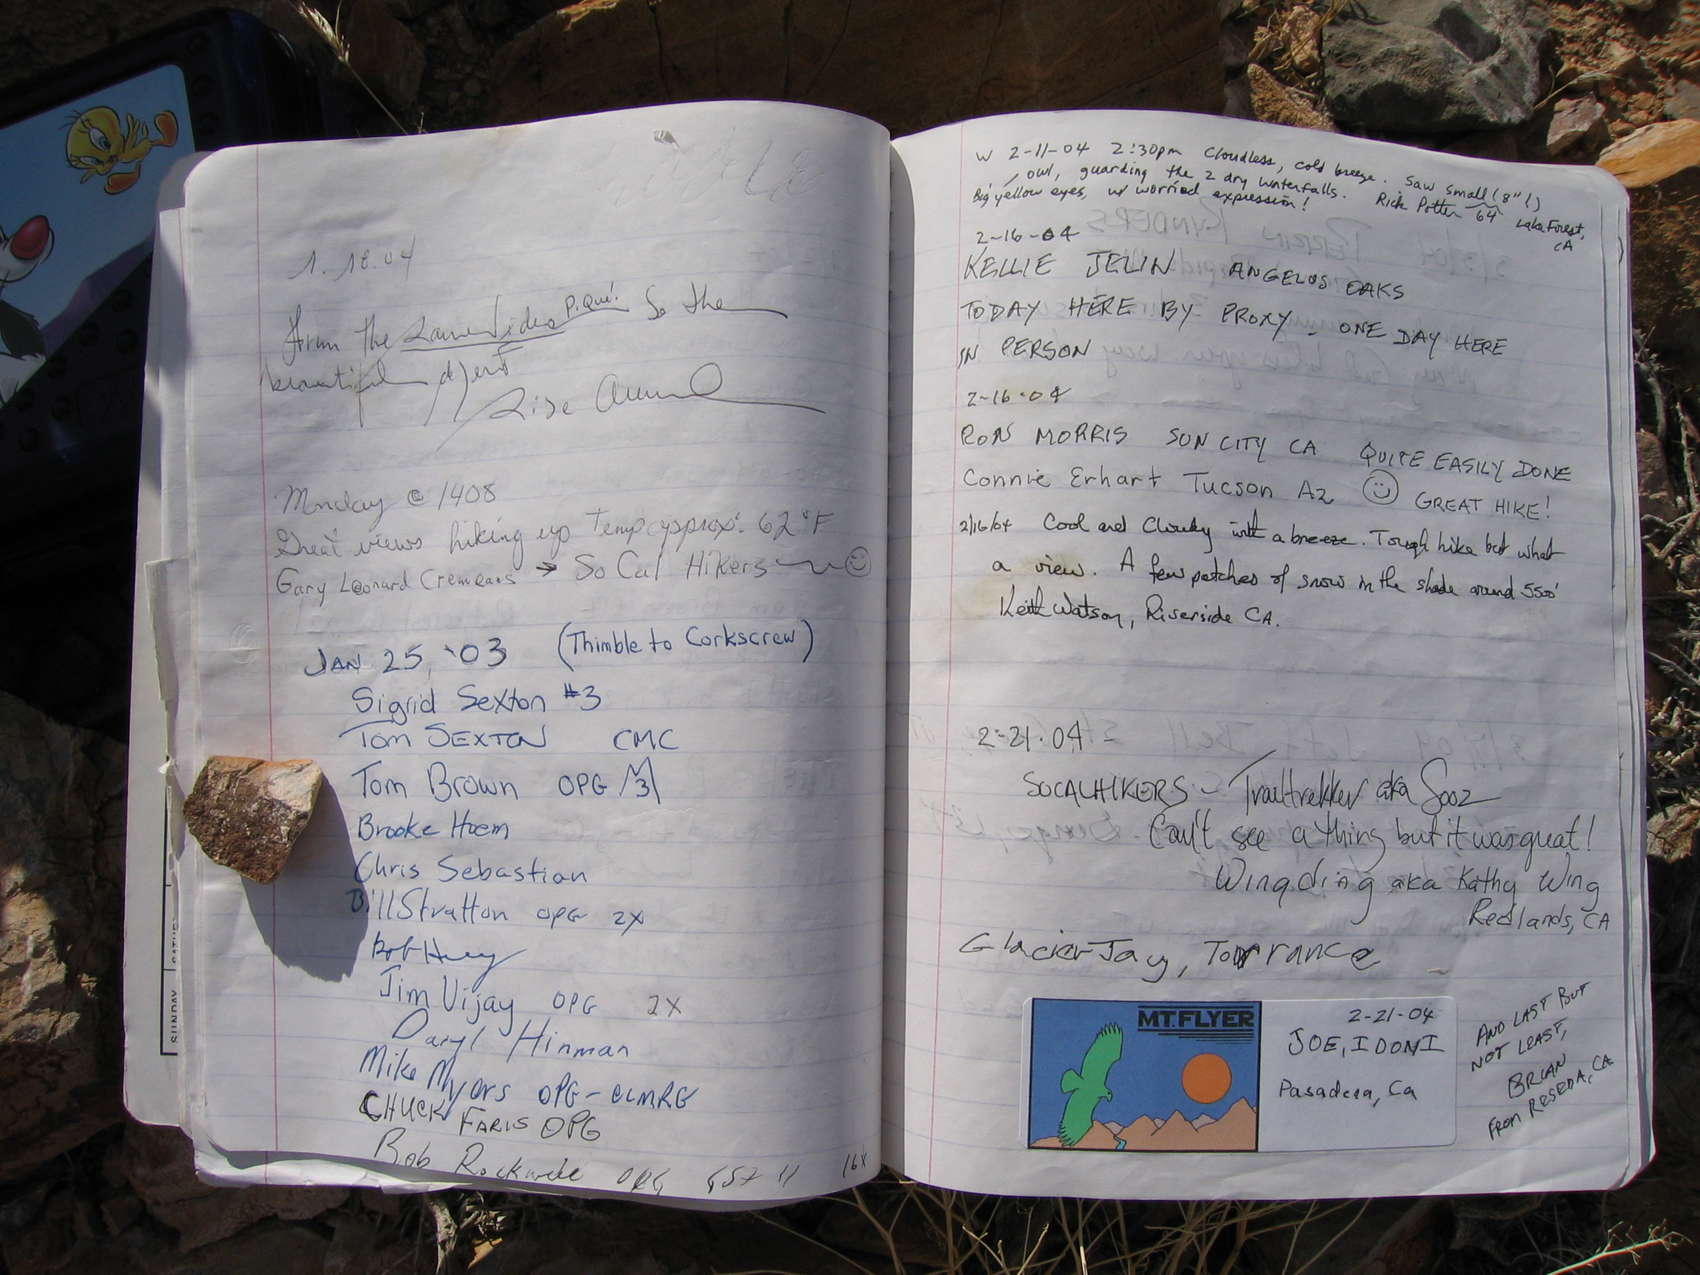 1.18.04
from the Lower Video Pique! So the
beautiful desert
Monday @ 1408
Great views hiking up Temp approx. 62°F
Gary Leonard Cremeans → So Cal Hikers
JAN 25, '03 (Thimble to Corkscrew)
Sigrid Sexton #3
Tom SEXTON CMC
Tom Brown OPG 3
Brooke Hoem
Chris Sebastian
Bill Stratton OPG 2X
Jim Vijay OPG 2X
Daryl Hinman
Mike Myers OPG-CLMRG
CHUCK FARIS OPG
Bob Rockwell OPG 16x
SUNDAY
W 2-11-04 2:30pm Cloudless, cold breeze. Saw small (8"!)
owl, guarding the 2 dry waterfalls.
Big yellow eyes, w/ worried expression! Rick Potter 64 Lake Forest,
CA
2-16-04
KELLIE JELIN ANGELUS OAKS
TODAY HERE BY PROXY - ONE DAY HERE
IN PERSON
2-16-04
RON MORRIS SUN CITY CA QUITE EASILY DONE
Connie Erhart Tucson AZ GREAT HIKE!
2/16/04 Cool and Cloudy with a breeze. Tough hike but what
a view. A few patches of snow in the shade around 5500'
Keith Watson, Riverside CA.
2-21-04
SOCALHIKERS - Trailtrekker aka Sooz
Can't see a thing but it was great!
Wingding aka Kathy Wing
Redlands, CA
GlacierJay, Torrance
MT.FLYER
2-21-04
JOE, IDOMI
Pasadena, Ca
AND LAST BUT
NOT LEAST,
BRIAN
FROM RESEDA, CA